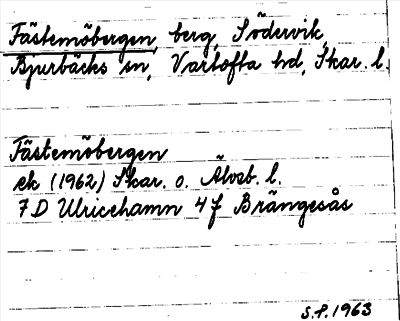 Fästemöbergen, berg, Södervik,
Bjurbäcks sn, Vartofta hd, Skar. l.
Fästemöbergen
ek (1962) Skar. o. Älvsb. l.
7D Ulricehamn 4f Brängesås
S.F. 1963